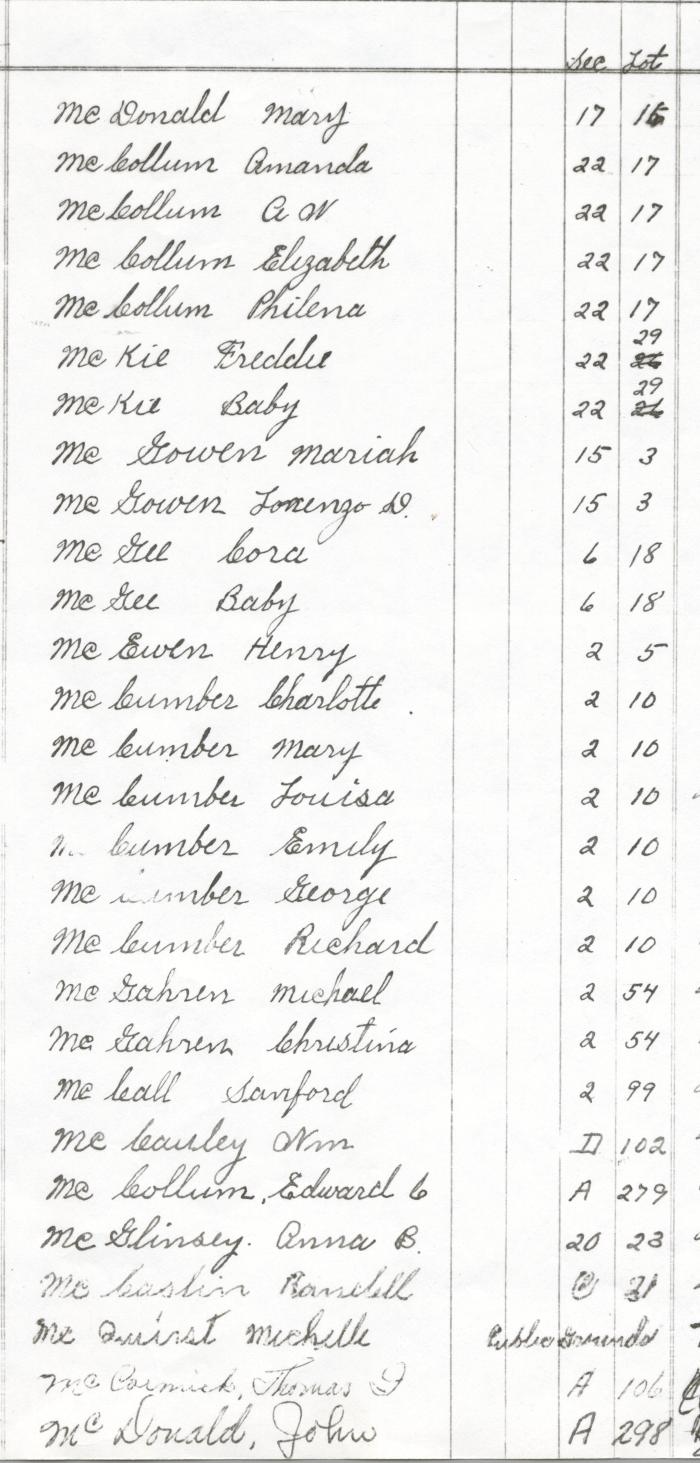 Sec Lot
McDonald Mary 17 15
McCollum Amanda 22 17
McCollum A W 22 17
Mc Collum Elizabeth 22 17
McCollum Philena 22 17
29
McKie Freddie 22 26
29
McKie Baby 22 26
Mc Gowen Mariah 15 3
Mc Gowen Lorenzo D. 15 3
Mc Gee Cora 6 18
Mc Gee Baby 6 18
Mc Ewen Henry 2 5
Mc Cumber Charlotte 2 10
Mc Cumber Mary 2 10
Mc Cumber Louisa 2 10
Mc Cumber Emily 2 10
Mc Cumber George 2 10
Mc Cumber Richard 2 10
Mc Gahren Michael 2 54
Mc Gahren Christina 2 54
Mc Call Sanford 2 99
Mc Cauley Wm D 102
Mc Collum, Edward C A 279
Mc Glinsey. Anna B. 20 23
Mc Caslin 21
Mc Michelle Public Grounds
McCormick, Thomas A 106
McDonald, John A 298